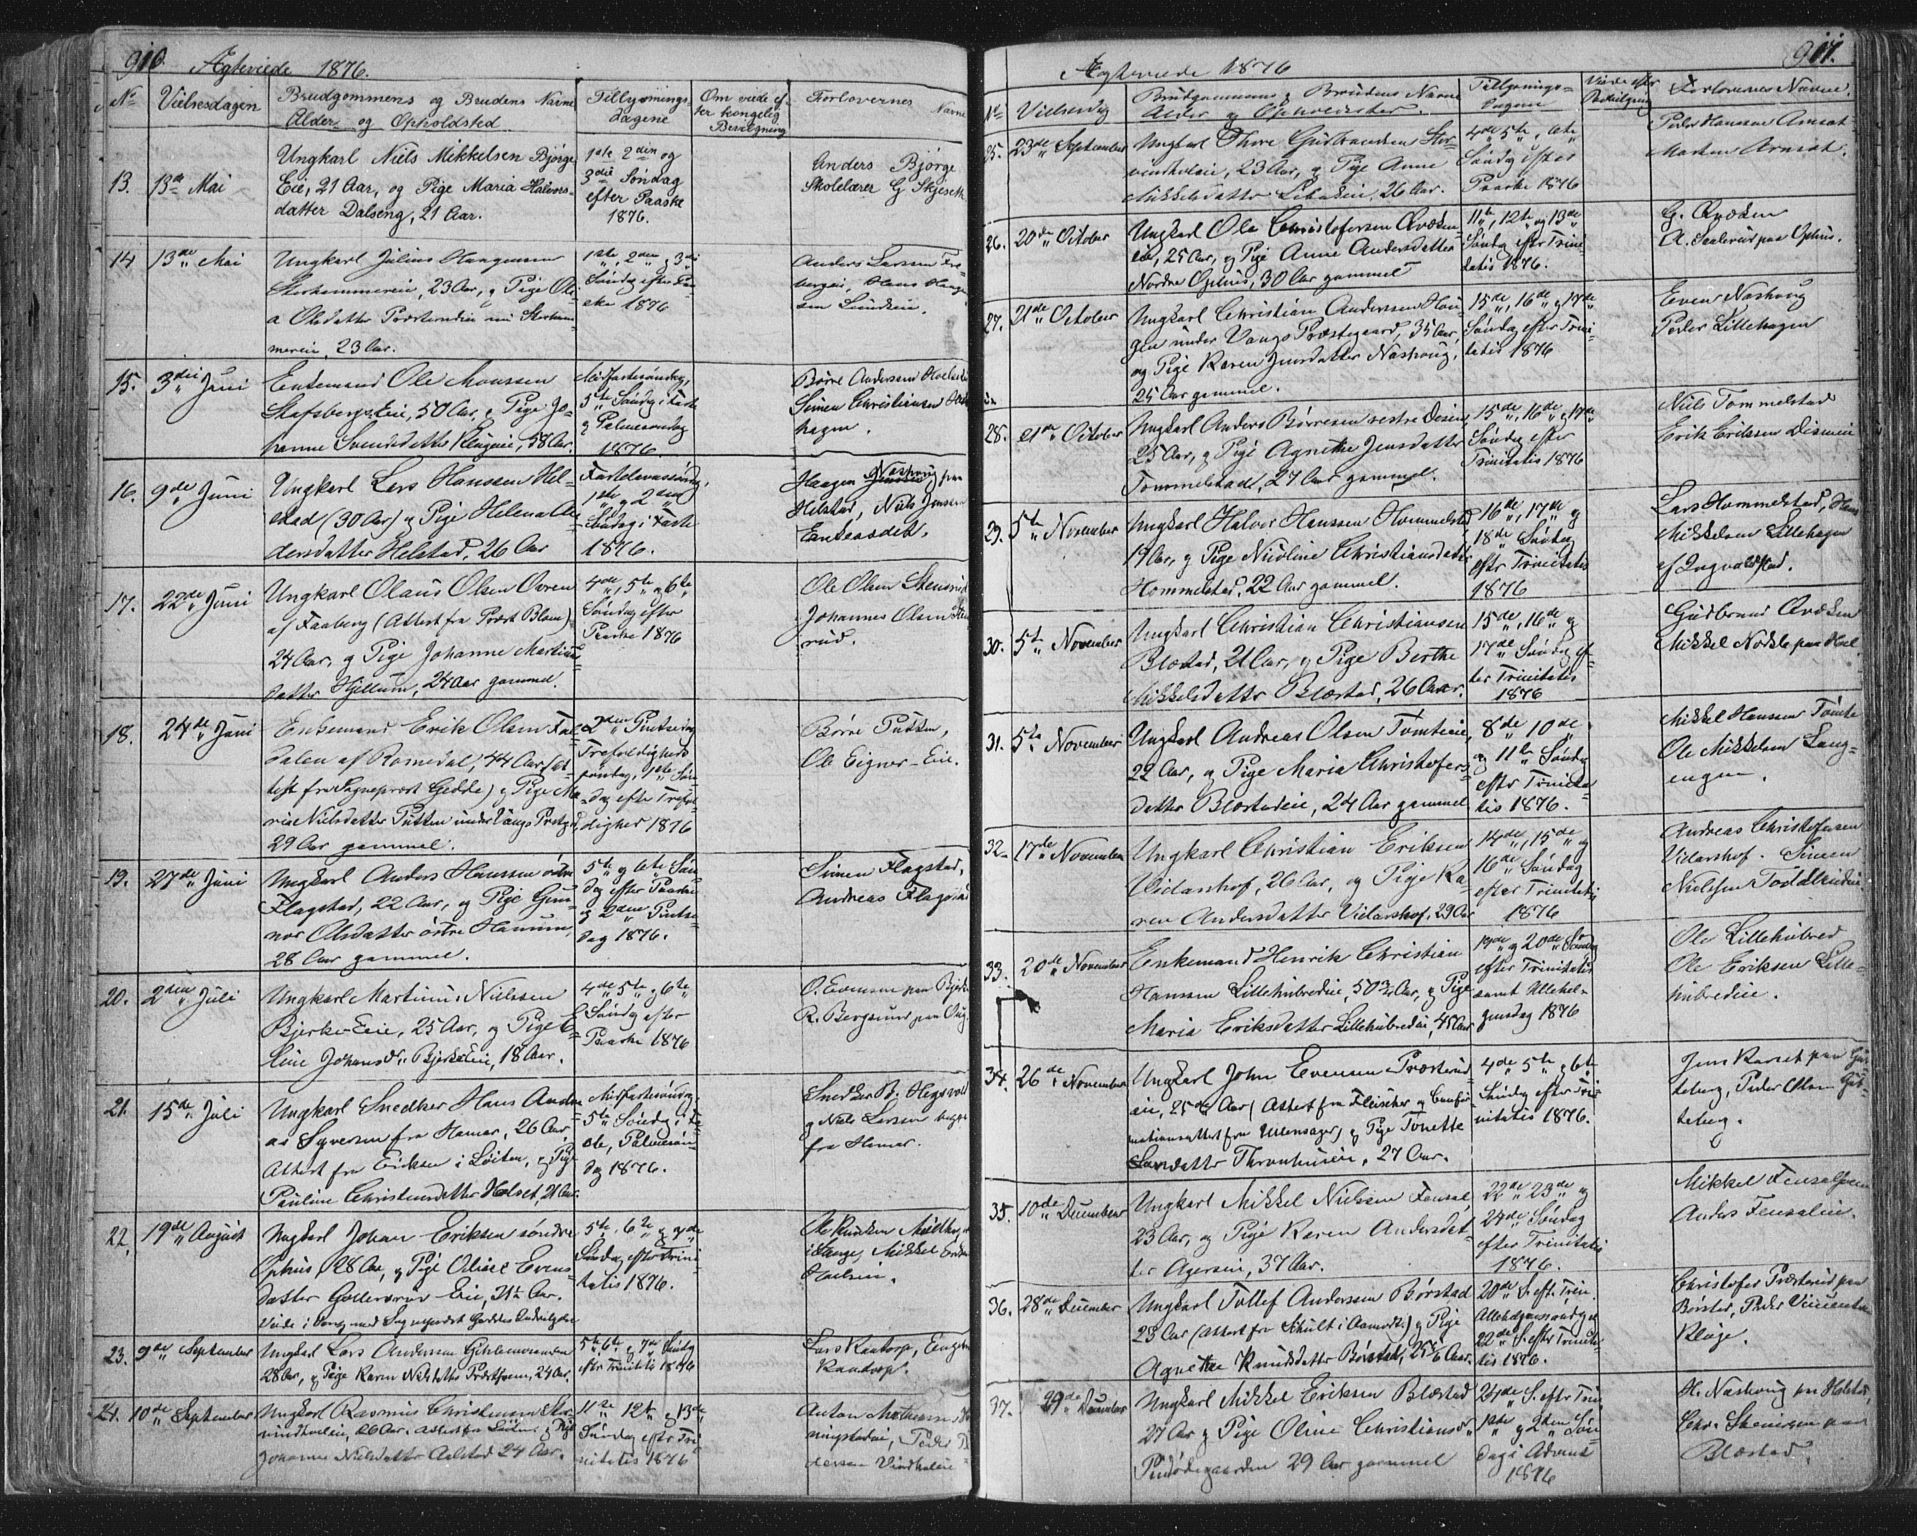 916. Ægteviede 1876.
No Vielsesdagen Brudgommens og Brudens Navne Alder og Opholdsted Tillysnings-dagene Om viede efter kongelig Bevilgning Forlovernes Navne
13. 13de Mai
Ungkarl Niels Mikkelsen Bjørge
Eie, 21 Aar, og Pige Maria Halvors-
datter Dalseng, 21 Aar.
1ste 2den og
3die Søndag
efter Paaske
1876.
Anders Bjørge
Skolelærer G Skjeseth
14. 13de Mai
Ungkarl Julius Haagensen
Storhammereie, 23 Aar, og Pige Ole-
a Olsdatter nu Storham-
mereie, 23 Aar.
1ste, 2den og 3die
Søndag efter Paa-
ske 1876
Anders Larsen
15. 3die Juni
Enkemand Ole Monssen
Skefsbergs Eie, 50 Aar, og Pige Jo-
hanne Svendsdatter 58 Aar.
Midfastesøndag,
5te Søndag i Faste
og Palmesøndag
1876.
Børre Andersen
Simen Christiansen
hagen.
16. 9de Juni
Ungkarl Lars Hanssen Hel-
stad (30 Aar) og Pige Helena An-
dersdatter Helstad, 26 Aar
Fastelavnssøndag,
1ste og 2den
Søndag i Faste
1876.
Haagen Nashoug paa
Helstad, Niels Jensen
17. 22de Juni
Ungkarl Olaus Olsen Ovren
af Faaberg (Attest fra Præst Blom)
24 Aar, og Pige Johanne Martins-
datter Hjellum, 24 Aar gammel.
4de, 5te og 6te
Søndag efter
Paaske 1876
Ole Olsen Stensrud
Johannes Olsen Sten-
rud.
18. 24de Juni
Enkemand Erik Olsen
dalen af Romedal, 44 Aar (At-
test fra Sogneprest Gedde) og Pige Ma-
rie Nielsdatter Putten under Vangs Prstgd,
29 Aar gammel.
2den Pintsedag
Trefoldigheds
søndag, 1ste Søn-
dag efter Trefol-
dighed 1876
Børre Putten,
Ole Eigner-Eie.
19. 27de Juni
Ungkarl Anders Hanssen østre
Flagstad, 22 Aar, og Pige Gun-
nor Olsdatter østre Hanum,
28 Aar gammel.
5te og 6te Søn-
dag efter Paaske
og 2den Pintse-
dag 1876.
Simen Flagstad,
Andreas Flagstad
20. 2den Juli
Ungkarl Martinus Nielssen
Bjerke-Eie, 25 Aar, og Pige E-
line Johansdr. Bjerkeeie, 18 Aar.
4de 5te og 6te
Søndag efter
Paaske 1876
O. Evensen paa Bjerke
R. Bergsund paa
21. 15de Juli
Ungkarl Snedker Hans Andre-
as Syversen fra Hamar, 26 Aar,
Attest fra Eriksen i Løiten, og Pige
Pauline Christensdatter Holset, 21 Aar.
Midfastesøndag,
5te Søndag i Fa-
ste, Palmesøn-
dag 1876.
Snedker B. Hegsvold
og Niels Larsen begge
fra Hamar.
22. 19de August
Ungkarl Johan Eriksen søndre
Ophus, 28 Aar, og Pige Oline Evens-
datter Gollersrud Eie, 21½ Aar.
5te, 6te og 7de
Søndag efter Trini
tatis 1876.
Mikkel
23. 9de September
Ungkarl Lars Andersen
28 Aar, og Pige Karen Nielsdatter 24 Aar.
5te, 6te og 7de Søndag
efter Trinitatis 1876
Lars Kaatorp,
Kaatorp.
24. 10de September
Ungkarl Rasmus Christensen Stor-
vindholeie, 26 Aar, attest fra Løiten, og Pige
Johanne Nielsdatter Aalstad 24 Aar.
11te 12te og 13de
Søndag efter Tri
nitatis 1876
Anton
Peder
dersen Vindholeie
917.
Ægteviede 1876
No Vielsesdag Brudgommens og Brudens Navne Alder og Opholdssted. Tillysnings-dagene Viede efter Bevilgning Forlovernes Navne.
25. 23de September
Ungkarl Thore Gudbrandsen Stor-
vindholeie, 23 Aar, og Pige Anne
Mikkelsdatter 26 Aar.
4de 5te og 6te
Søndag efter
Paaske 1876
Peder Hanssen Arnset
Morten Arnset.
26. 20de October
Ungkarl Ole Christofersen Kvæken-
eie, 25 Aar, og Pige Anne Andersdatter
Nordre Ophus, 30 Aar gammel
11te, 12te og 13de
Søndag efter Trini
tatis 1876.
G. Kvæken
A. paa Ophus.
27. 21de October
Ungkarl Christian Andersen Hau-
gen under Vangs Præstegaard, 35 Aar,
og Pige Karen Jensdatter Nashoug,
25 Aar gammel.
15de, 16de og 17de
Søndag efter Trini
tatis 1876
Even Nashoug
Peder Lillehagen
28. 21de October
Ungkarl Anders Børresen vestre Disen
25 Aar, og Pige Agnethe Jensdatter
Tommelstad, 27 Aar gammel.
15de, 16de og 17de
Søndag efter
Trinitatis 1876
Niels Tommelstad
Erik Eriksen Diseneie
29. 5te November
Ungkarl Halvor Hanssen Hommelstad
19 Aar, og Pige Nicoline Christiansdatter
Hommelstad, 22 Aar gammel.
16de, 17de og
18de Søndag
efter Trinitatis
1876
Lars Hommelstad, Hans
Mikkelsen Lillehagen
af Ingvaldstad.
30. 5te November
Ungkarl Christian Christiansen
Blæstad, 21 Aar, og Pige Berthe
Mikkelsdatter Blæstad, 26 Aar.
15de, 16de og
17de Søndag ef-
ter Trinitatis
1876
Gudbrand Kvæken
Mikkel Nokle paa Hol
31. 5te November
Ungkarl Andreas Olsen Tomteeie,
22 Aar, og Pige Maria Christofers-
datter Blæstadeie, 24 Aar gammel
8de 10de
og 11te Søndag
efter Trinita-
tis 1876.
Mikkel Hanssen Tomte
Ole Mikkelsen Lang-
engen.
32. 17de November
Ungkarl Christian Eriksen
Vidarshof, 26 Aar, og Pige Ka-
ren Andersdatter Vidarshof, 29 Aar
14de, 15de og
16de Søndag
efter Trinitatis
1876
Andreas Christofersen
Vidarshof. Simen
Nielsen
33. 20de November
Enkemand Henrik Christian
Hanssen Lillehubredeie, 50¾ Aar, og Pige
Maria Eriksdatter Lillehubredeie, 45 Aar
19de og 20de Søndag
efter Trinitatis
samt Allehel-
gensdag 1876
Ole Lillehubred
Ole Eriksen Lille-
hubredeie.
34. 26de November
Ungkarl John Evensen Præsterud-
eie, 25 Aar (Attest fra Fleischer og Confir-
mationsattest fra Ullensager) og Pige Tonette
Larsdatter 27 Aar.
4de 5te og 6te
Søndag efter Tri-
nitatis 1876.
Jens paa Gaa-
seberg, Peder Olsen Gaa-
seberg.
35. 10de December
Ungkarl Mikkel Nielsen Fensal,
23 Aar, og Pige Karen Andersdat-
ter Agerseie, 37 Aar.
22de 23de og
24de Søndag
efter Trinitatis
1876.
Mikkel
Anders Fensaleie.
36. 28de December
Ungkarl Tollef Anderssen Børstad
23 Aar (Attest fra Schult i Aamodt.) og Pige
Agnethe Knudsdatter Børstad, 25 Aar.
20de S. eft. Trin.
Allehelgenssøndag og
22de S. efter Trinita-
tis 1876.
Christofer Præsterud paa
Børstad, Peder
37. 29de December
Ungkarl Mikkel Eriksen Blæstad
27 Aar og Pige Oline Christiansdr.
29 Aar gammel
24de S. efter Trin
1ste og 2den Søn-
dag i Advent
1876
H. Nashoug paa Helstad,
Chr. paa
Blæstad.